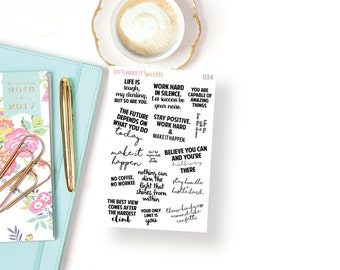 LET'S MAKE IT Sparkle
034
LIFE IS
tough,
my darling,
BUT SO ARE YOU.
WORK HARD
IN SILENCE.
Let success be
your noise.
YOU ARE
CAPABLE OF
AMAZING
THINGS
THE FUTURE
DEPENDS ON
WHAT YOU DO
today.
STAY POSITIVE.
WORK HARD
&
MAKE IT HAPPEN
make it
happen
BELIEVE YOU CAN
AND YOU'RE
halfway
THERE
NO COFFEE.
NO WORKEE
nothing can
dim the
light that
shines from
within
stay humble.
hustle hard
THE BEST VIEW
COMES AFTER
THE HARDEST
climb
YOUR ONLY
LIMIT IS
you
throw kindness
around like
confetti
2016
2017